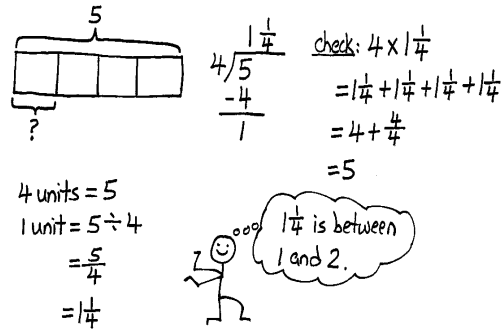 5
?
1 1/4
4)5
-4
1
check: 4 × 1 1/4
= 1 1/4 + 1 1/4 + 1 1/4 + 1 1/4
= 4 + 4/4
= 5
4 units = 5
1 unit = 5 ÷ 4
= 5/4
= 1 1/4
1 1/4 is between
1 and 2.